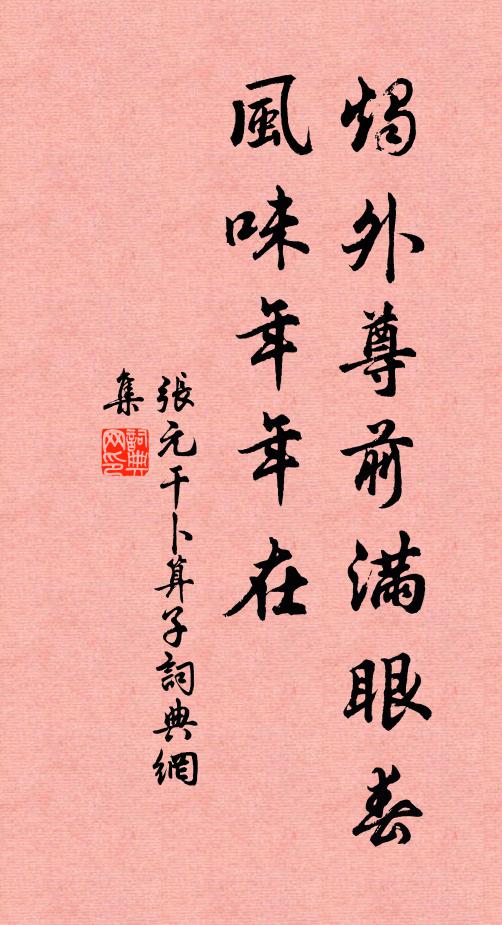 燭外尊前滿眼春
風味年年在
張元干卜算子詞典網
集
詞典网印